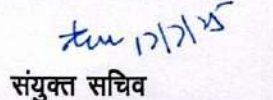 17/7/25
संयुक्त सचिव